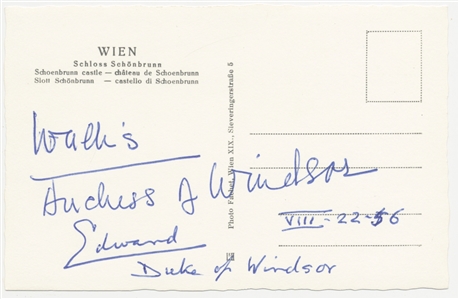 WIEN
Schloss Schönbrunn
Schoenbrunn castle — château de Schoenbrunn
Slott Schönbrunn — castello di Schoenbrunn
Photo Farbset, Wien XIX., Sieveringerstraße 5
Wallis
Duchess of Windsor
VIII - 22 - 56
Edward
Duke of Windsor